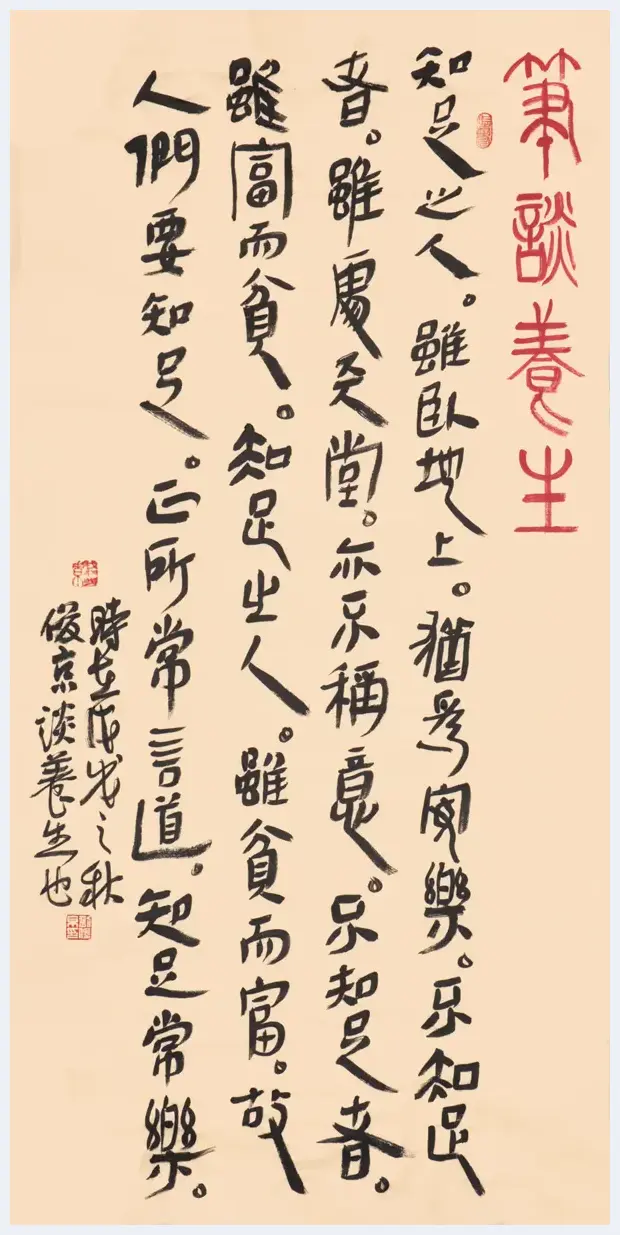 筆談養生
知足之人。雖臥地上。猶爲安樂。不知足
者。雖處天堂。亦不稱意。不知足者。
雖富而貧。知足之人。雖貧而富。故
人們要知足。正所常言道。知足常樂。
時在戊戌之秋
俊京談養生也